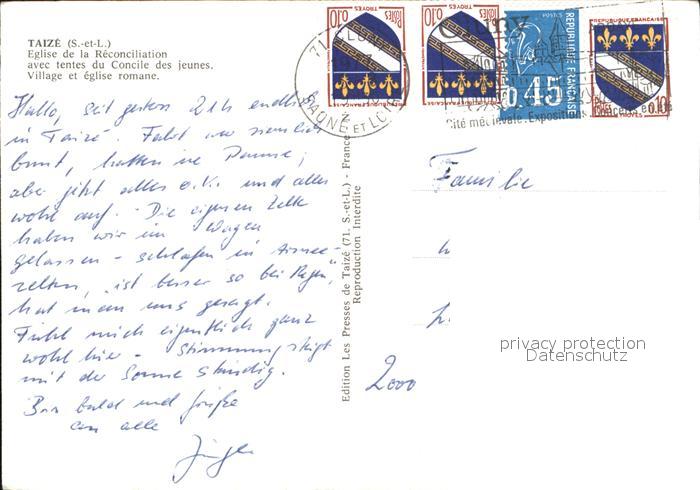 TAIZÉ (S.-et-L.)
Eglise de la Réconciliation
avec tentes du Concile des jeunes.
Village et église romane.
Hallo, seit gestern 21h endlich
in Taizé. Fahrt war ziemlich
bunt, hatten ne Panne,
aber jetzt alles o.k. und alles
wohl auf. Die eigenen Zelte
haben wir im Wagen
gelassen - schlafen in Armee-
zelten, "ist besser so bei Regen",
hat man uns gesagt.
Fühl mich eigentlich ganz
wohl hier - Stimmung steigt
mit der Sonne ständig.
Bis bald und Grüße
an alle
Edition Les Presses de Taizé (71. S.-et-L.) - France
Reproduction Interdite
TROYES
POSTES
0,10
TROYES
POSTES
0,10
POSTES
REPUBLIQUE FRANÇAISE
0,45
REPUBLIQUE FRANÇAISE
0,10
TROYES
71
SAONE ET LOIRE
Cluny
Cité médiévale. Expositions
Familie
2000
privacy protection
Datenschutz